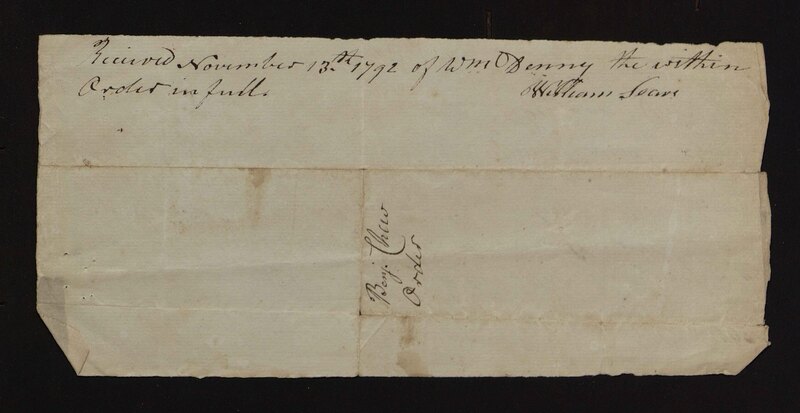 Received November 13th 1792 of Wm Denny the within
Order in full.
William
Benj. Chew
Order